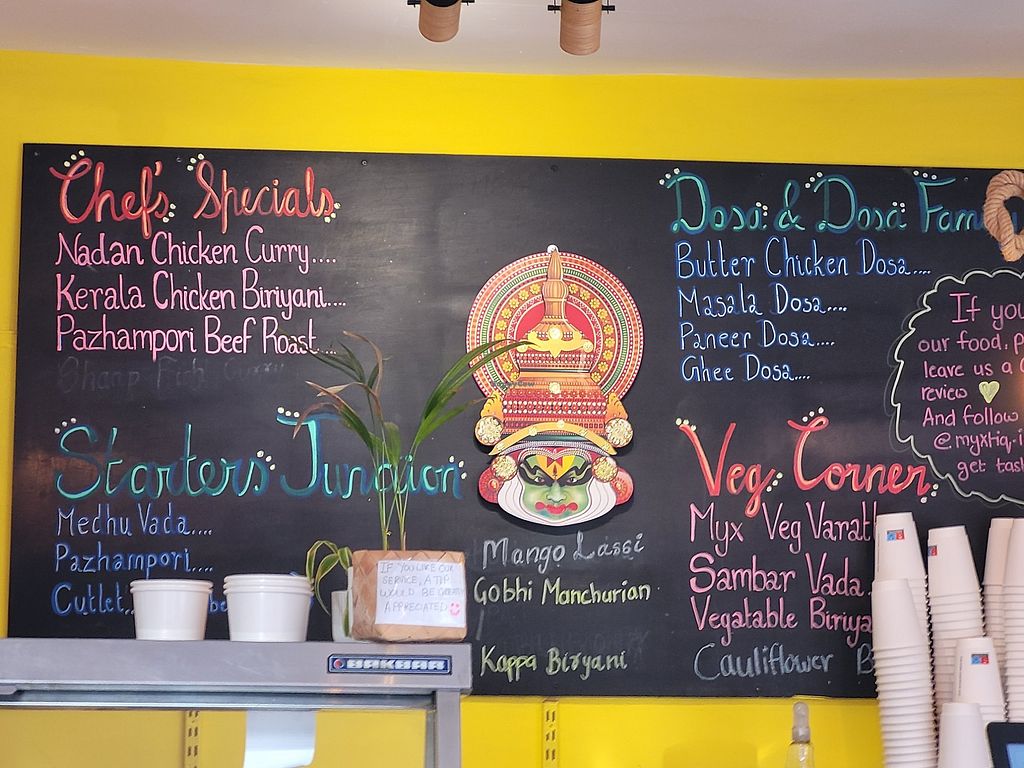 Chef's Specials
Nadan Chicken Curry....
Kerala Chicken Biriyani....
Pazhampori Beef Roast....
Starters Junction
Medhu Vada....
Pazhampori....
Cutlet..
IF YOU LIKE OUR
SERVICE, A TIP
WOULD BE GREATLY
APPRECIATED
BAKBAR
Mango Lassi
Gobhi Manchurian
/
Kappa Biryani
Dosa & Dosa Fam
Butter Chicken Dosa....
Masala Dosa....
Paneer Dosa....
Ghee Dosa....
Veg Corner
Myx Veg Varat
Sambar Vada.
Vegatable Biriya
Cauliflower B
If you
our food, p
leave us a
review
And follow
@myxtiq.i
get tast